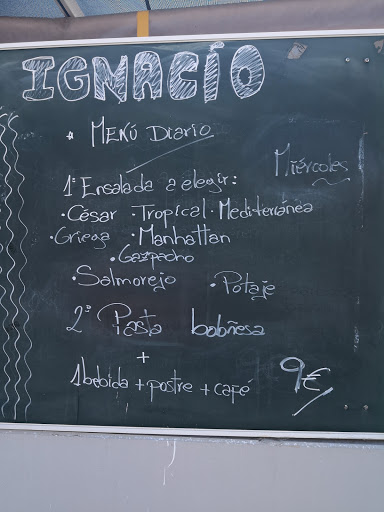 IGNACIO
• MENÚ DIARIO
Miércoles
1º Ensalada a elegir:
• César • Tropical • Mediterránea
• Griega • Manhattan
• Gazpacho
• Salmorejo • Potaje
2º Pasta boloñesa
+
1 bebida + postre + café 9€